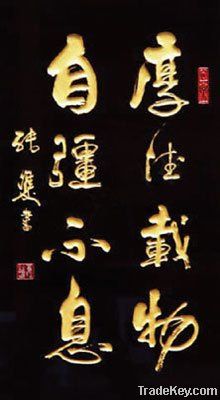 厚德載物
自彊不息
TradeKey.com